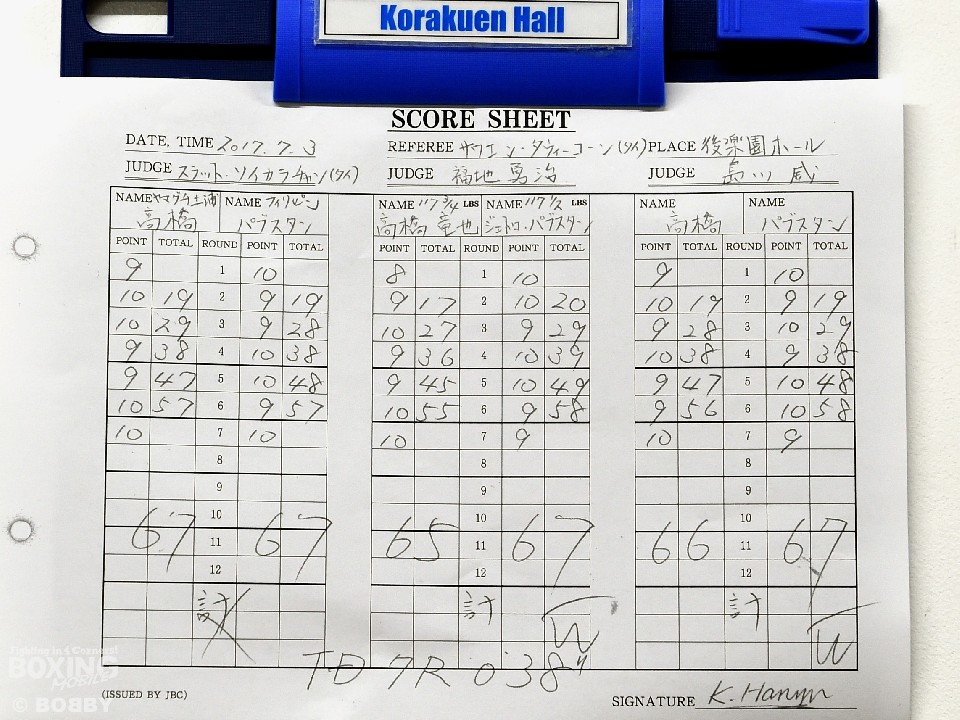 Korakuen Hall
SCORE SHEET
DATE, TIME 2017. 7. 3
REFEREE サウエン・タウィーコーン(タイ) PLACE 後楽園ホール
JUDGE スラット・ソイカラチャン(タイ) JUDGE 福地勇治 JUDGE 島川威
NAME ヤマグチ土浦 NAME フィリピン NAME 117 3/4 LBS NAME 117 1/2 LBS NAME NAME
高橋 パブスタン 高橋竜也 ジェトロ・パブスタン 高橋 パブスタン
POINT TOTAL ROUND POINT TOTAL POINT TOTAL ROUND POINT TOTAL POINT TOTAL ROUND POINT TOTAL
9 1 10 8 1 10 9 1 10
10 19 2 9 19 9 17 2 10 20 10 19 2 9 19
10 29 3 9 28 10 27 3 9 29 9 28 3 10 29
9 38 4 10 38 9 36 4 10 39 10 38 4 9 38
9 47 5 10 48 9 45 5 10 49 9 47 5 10 48
10 57 6 9 57 10 55 6 9 58 9 56 6 10 58
10 7 10 10 7 9 10 7 9
8 8 8
9 9 9
10 10 10
67 11 67 65 11 67 66 11 67
12 12 12
計 計 計
W W
TD 7R 0'38"
(ISSUED BY JBC) SIGNATURE
Fighting in 4 Corners!
BOXING
MOBILE
© BOBBY